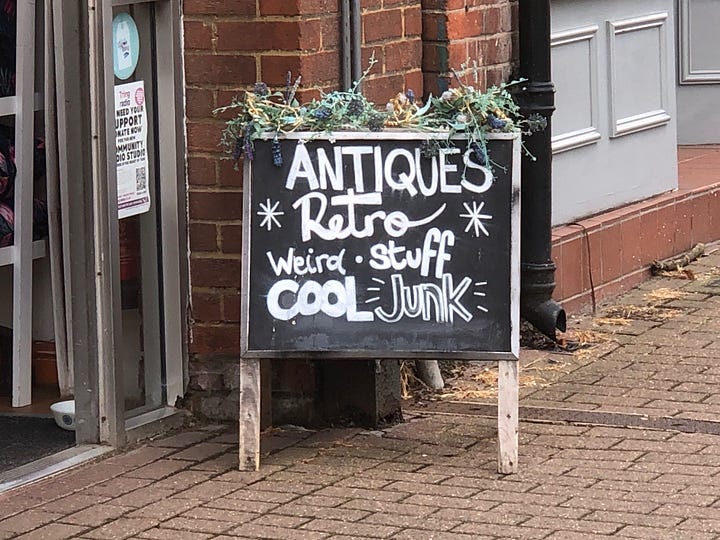 Tring
radio
NEED YOUR
SUPPORT
DONATE NOW
COMMUNITY
RADIO STUDIO
ANTIQUES
Retro
Weird • stuff
COOL Junk